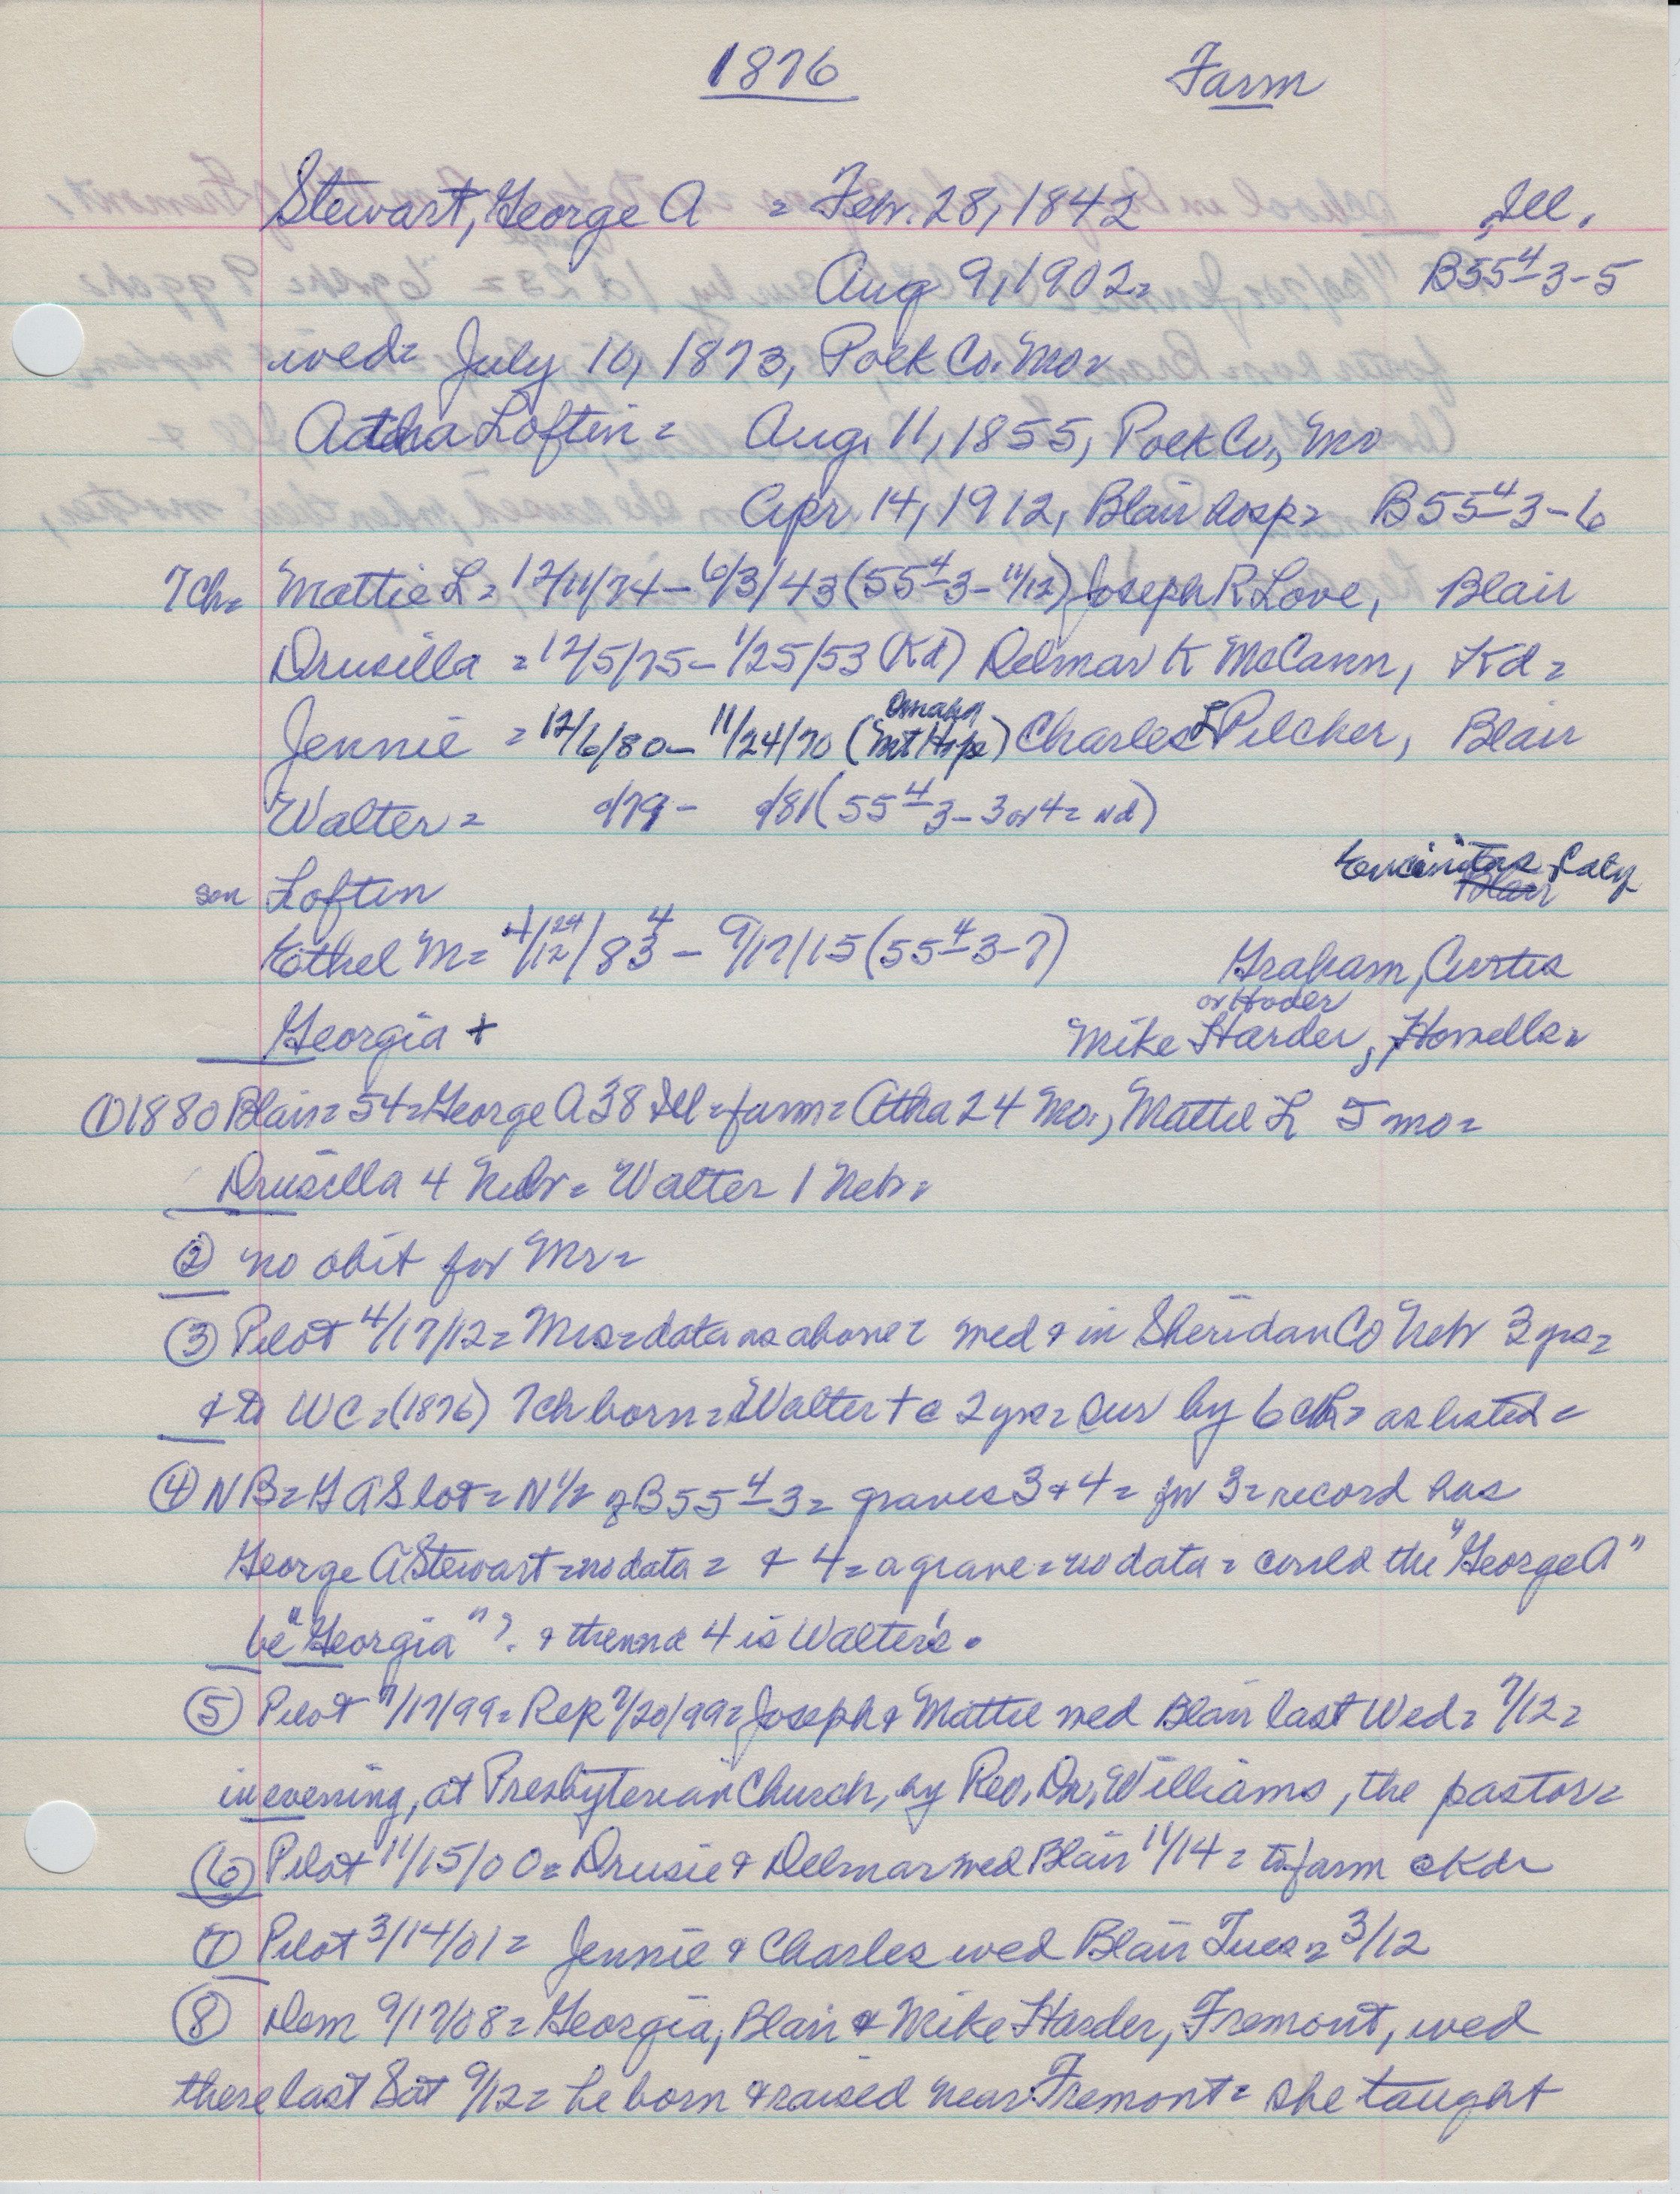 1876 Farm
Stewart, George A = Febr. 28, 1842 Ill.
Aug 9, 1902= B55 4 3-5
wed= July 10, 1873, Polk Co. Mo=
Atha Loftin = Aug. 11, 1855, Polk Co., Mo
Apr. 14, 1912, Blair hosp= B55 4 3-6
7ch= Mattie L= 12/11/74 - 6/3/43 (55 4 3-11/12) Joseph R Love, Blair
Drusilla = 12/5/75 - 1/25/53 (Kd) Delmar K McCann, Kd=
Jennie = 12/6/80 - 11/24/70 (Omaha Mt Hope) Charles L Pilcher, Blair
Walter = c/79 - c/81 (55 4 3-3 or 4= nd)
Encinitas Caly
son Loftin Blair
Ethel M= 4/12/24/83 4 - 9/17/15 (55 4 3-7) Graham, Curtis
or Hoder
Georgia + Mike Harder, Howells=
① 1880 Blair= 54= George A 38 Ill= farm= Atha 24 Mo., Mattie L 5 mo=
Drusilla 4 Nebr= Walter 1 Nebr=
② no obit for Mr=
③ Pilot 4/17/12= Mrs= data as above= wed & in Sheridan Co Nebr 3 yrs=
& to WC= (1876) 7ch born= Walter + @ 2 yrs= sur by 6 ch= as listed=
④ NB= G A S lot= N 1/2 of B55 4 3= graves 3 & 4= for 3= record has
George A Stewart= no data= & 4= a grave= no data= could the "George A"
be "Georgia"? & then 4 is Walter's.
⑤ Pilot 7/17/99= Rep 7/20/99= Joseph & Mattie wed Blair last Wed= 7/12=
in evening, at Presbyterian Church, by Rev. Dr. Williams, the pastor=
⑥ Pilot 11/15/00= Drusie & Delmar wed Blair 11/14= to farm @ Kd=
⑦ Pilot 3/14/01= Jennie & Charles wed Blair Tues= 3/12
⑧ Dem 9/17/08= Georgia, Blair & Mike Harder, Fremont, wed
there last Sat 9/12= he born & raised near Fremont= she taught